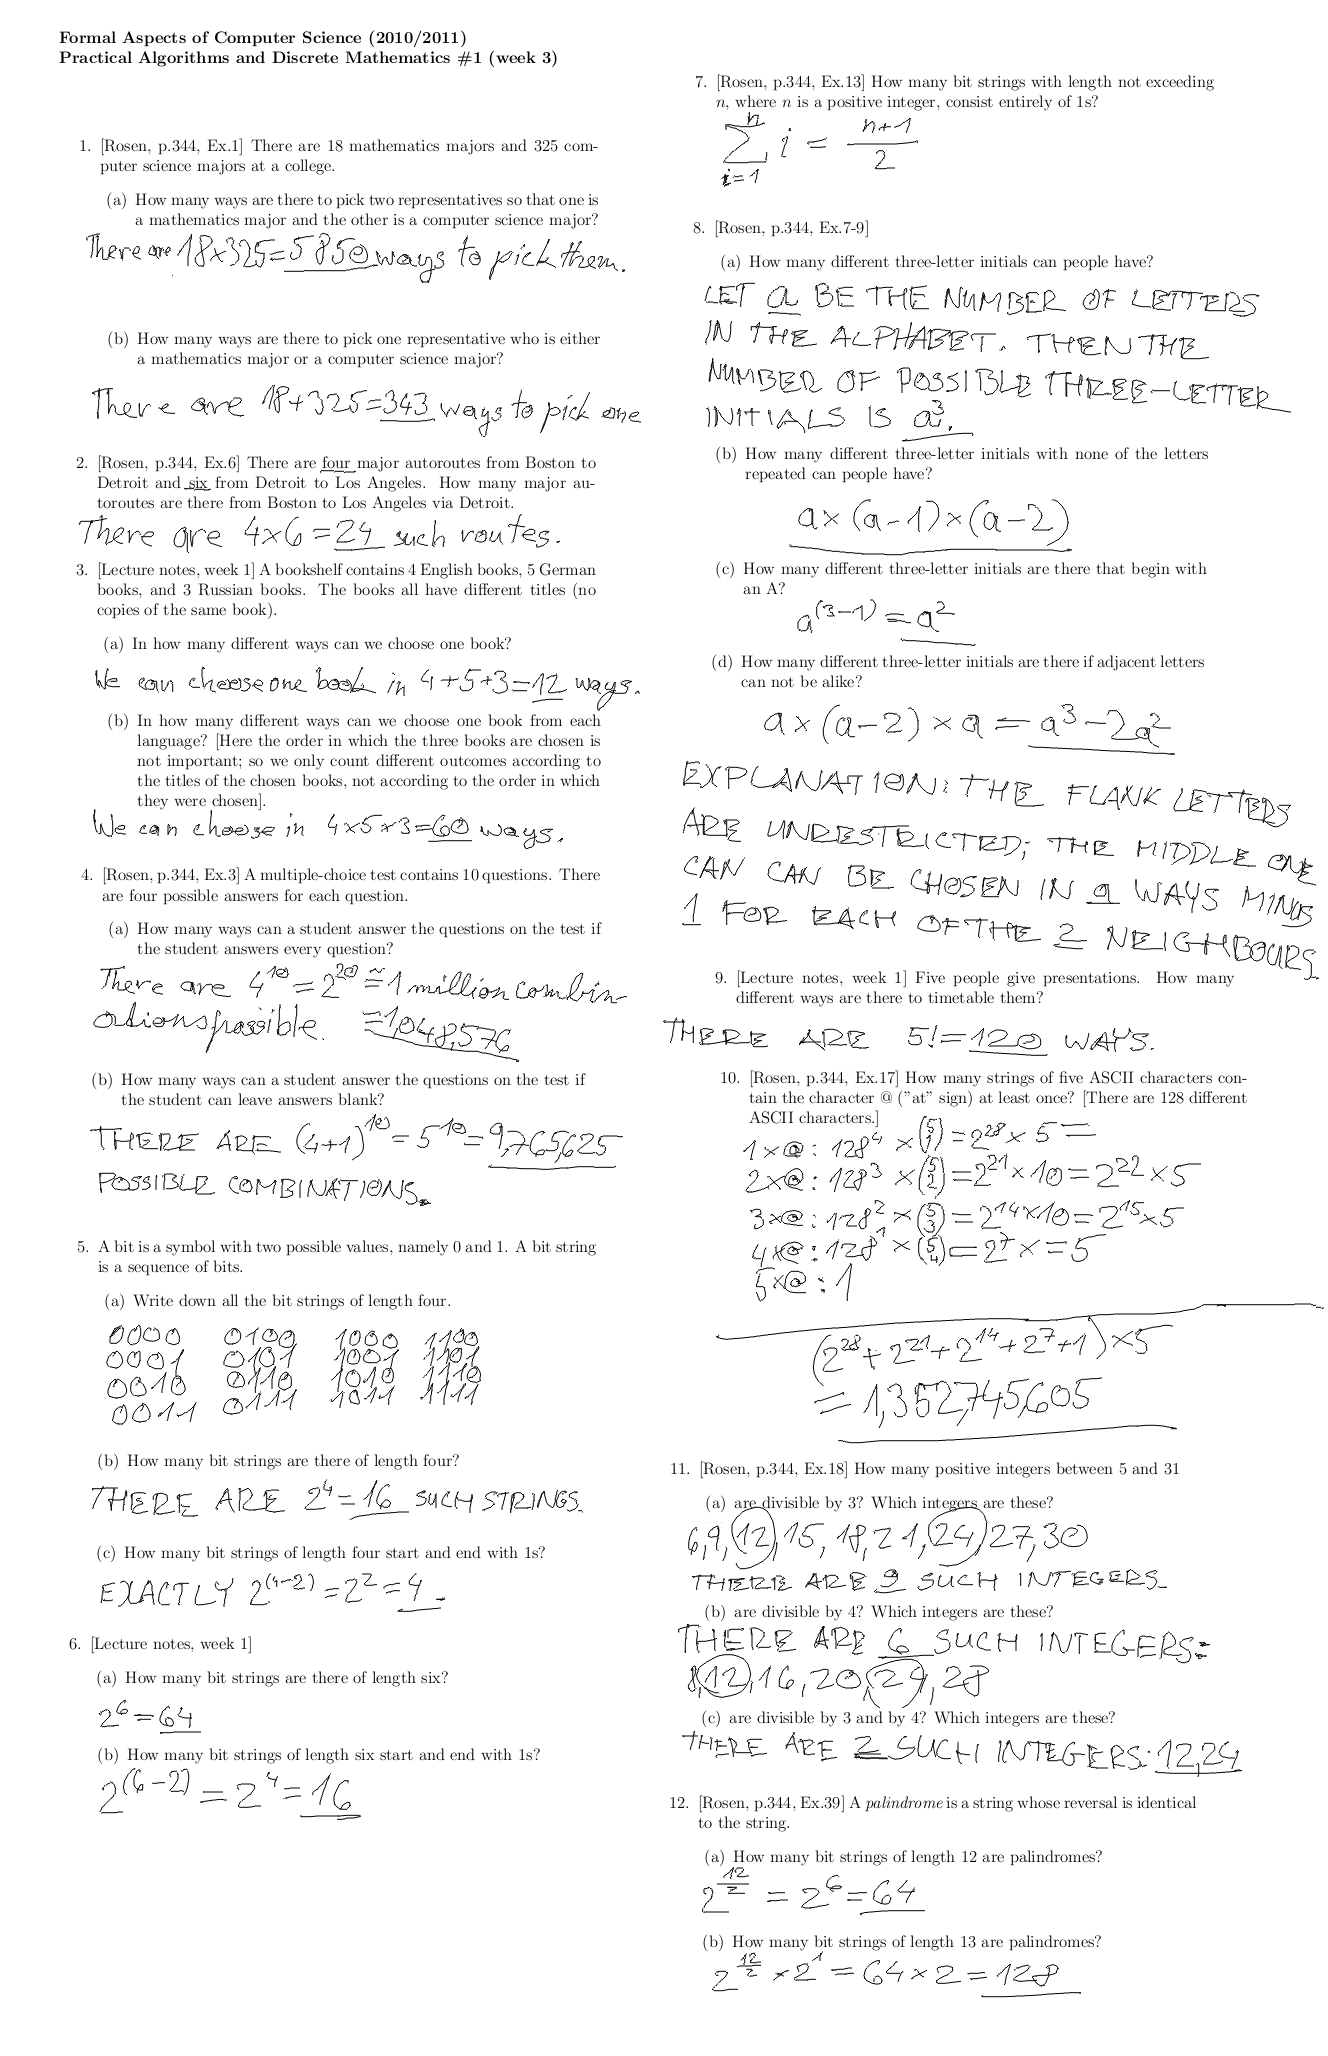 Formal Aspects of Computer Science (2010/2011)
Practical Algorithms and Discrete Mathematics #1 (week 3)
1. [Rosen, p.344, Ex.1] There are 18 mathematics majors and 325 com-
puter science majors at a college.
(a) How many ways are there to pick two representatives so that one is
a mathematics major and the other is a computer science major?
There are 18×325=5850 ways to pick them.
(b) How many ways are there to pick one representative who is either
a mathematics major or a computer science major?
There are 18+325=343 ways to pick one
2. [Rosen, p.344, Ex.6] There are four major autoroutes from Boston to
Detroit and six from Detroit to Los Angeles. How many major au-
toroutes are there from Boston to Los Angeles via Detroit.
There are 4×6=24 such routes.
3. [Lecture notes, week 1] A bookshelf contains 4 English books, 5 German
books, and 3 Russian books. The books all have different titles (no
copies of the same book).
(a) In how many different ways can we choose one book?
We can choose one book in 4+5+3=12 ways.
(b) In how many different ways can we choose one book from each
language? [Here the order in which the three books are chosen is
not important; so we only count different outcomes according to
the titles of the chosen books, not according to the order in which
they were chosen].
We can choose in 4×5×3=60 ways.
4. [Rosen, p.344, Ex.3] A multiple-choice test contains 10 questions. There
are four possible answers for each question.
(a) How many ways can a student answer the questions on the test if
the student answers every question?
There are 4^10 = 2^20 ≈ 1 million combin
ations possible. =1,048,576
(b) How many ways can a student answer the questions on the test if
the student can leave answers blank?
THERE ARE (4+1)^10 = 5^10 = 9,765,625
POSSIBLE COMBINATIONS.
5. A bit is a symbol with two possible values, namely 0 and 1. A bit string
is a sequence of bits.
(a) Write down all the bit strings of length four.
0000 0100 1000 1100
0001 0101 1001 1101
0010 0110 1010 1110
0011 0111 1011 1111
(b) How many bit strings are there of length four?
THERE ARE 2^4 = 16 SUCH STRINGS.
(c) How many bit strings of length four start and end with 1s?
EXACTLY 2^(4-2) = 2^2 = 4.
6. [Lecture notes, week 1]
(a) How many bit strings are there of length six?
2^6 = 64
(b) How many bit strings of length six start and end with 1s?
2^(6-2) = 2^4 = 16
7. [Rosen, p.344, Ex.13] How many bit strings with length not exceeding
n, where n is a positive integer, consist entirely of 1s?
n
∑ i = n+1 / 2
i=1
8. [Rosen, p.344, Ex.7-9]
(a) How many different three-letter initials can people have?
LET a BE THE NUMBER OF LETTERS
IN THE ALPHABET. THEN THE
NUMBER OF POSSIBLE THREE-LETTER
INITIALS IS a^3.
(b) How many different three-letter initials with none of the letters
repeated can people have?
a×(a-1)×(a-2)
(c) How many different three-letter initials are there that begin with
an A?
a^(3-1) = a^2
(d) How many different three-letter initials are there if adjacent letters
can not be alike?
a×(a-2)×a = a^3-2a^2
EXPLANATION: THE FLANK LETTERS
ARE UNRESTRICTED; THE MIDDLE ONE
CAN CAN BE CHOSEN IN a WAYS MINUS
1 FOR EACH OF THE 2 NEIGHBOURS
9. [Lecture notes, week 1] Five people give presentations. How many
different ways are there to timetable them?
THERE ARE 5!=120 WAYS.
10. [Rosen, p.344, Ex.17] How many strings of five ASCII characters con-
tain the character @ ("at" sign) at least once? [There are 128 different
ASCII characters.]
1×@: 128^4 × (5 1) = 2^28 × 5 =
2×@: 128^3 × (5 2) = 2^21 × 10 = 2^22 × 5
3×@: 128^2 × (5 3) = 2^14 × 10 = 2^15 × 5
4×@: 128^1 × (5 4) = 2^7 × = 5
5×@: 1
(2^28 + 2^21 + 2^14 + 2^7 + 1) × 5
= 1,352,745,605
11. [Rosen, p.344, Ex.18] How many positive integers between 5 and 31
(a) are divisible by 3? Which integers are these?
6,9,12,15,18,21,24,27,30
THERE ARE 9 SUCH INTEGERS.
(b) are divisible by 4? Which integers are these?
THERE ARE 6 SUCH INTEGERS:
8,12,16,20,24,28
(c) are divisible by 3 and by 4? Which integers are these?
THERE ARE 2 SUCH INTEGERS: 12,24
12. [Rosen, p.344, Ex.39] A palindrome is a string whose reversal is identical
to the string.
(a) How many bit strings of length 12 are palindromes?
2^(12/2) = 2^6 = 64
(b) How many bit strings of length 13 are palindromes?
2^(12/2) × 2^1 = 64 × 2 = 128